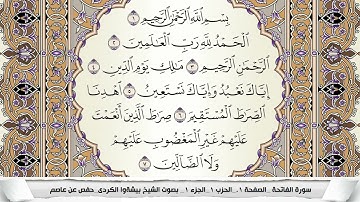 بِسْمِ ٱللَّهِ ٱلرَّحْمَٰنِ ٱلرَّحِيمِ ١
ٱلْحَمْدُ لِلَّهِ رَبِّ ٱلْعَٰلَمِينَ ٢
ٱلرَّحْمَٰنِ ٱلرَّحِيمِ ٣ مَٰلِكِ يَوْمِ ٱلدِّينِ ٤
إِيَّاكَ نَعْبُدُ وَإِيَّاكَ نَسْتَعِينُ ٥ ٱهْدِنَا
ٱلصِّرَٰطَ ٱلْمُسْتَقِيمَ ٦ صِرَٰطَ ٱلَّذِينَ أَنْعَمْتَ
عَلَيْهِمْ غَيْرِ ٱلْمَغْضُوبِ عَلَيْهِمْ
وَلَا ٱلضَّآلِّينَ ٧
سورة الفاتحة _الصفحة ١_ الحزب ١_الجزء ١_ بصوت الشيخ بيشةوا الكردي_ حفص عن عاصم